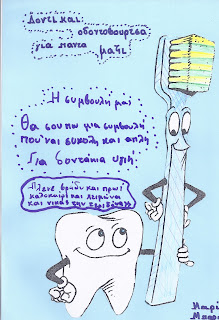 Δόντι και
οδοντόβουρτσα
για πάντα
μαζί
Η συμβουλή μας
Θα σου πω μια συμβουλή
που'ναι εύκολη και απλή
Για δοντάκια υγιή.
Πλένε βράδυ και πρωί
καλοκαίρι και χειμώνα
και νίκας την τερηδόνα